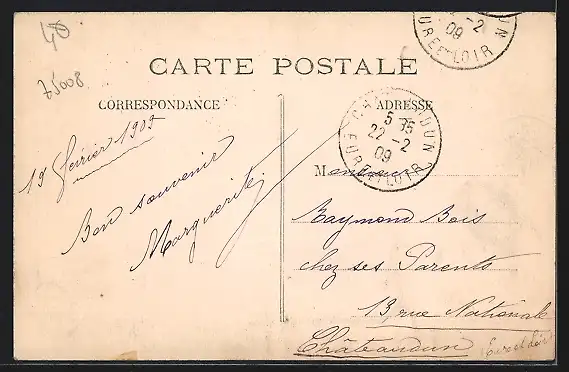 40
75008
CARTE POSTALE
CORRESPONDANCE
ADRESSE
19 février 1909
Bon souvenir
Marguerite
22 -2
09
EURE-ET-LOIR
CHATEAUDUN
5 15
22 -2
09
EURE-ET-LOIR
Monsieur
Raymond Bois
chez ses Parents
13, rue Nationale
Châteaudun
Eure et Loir